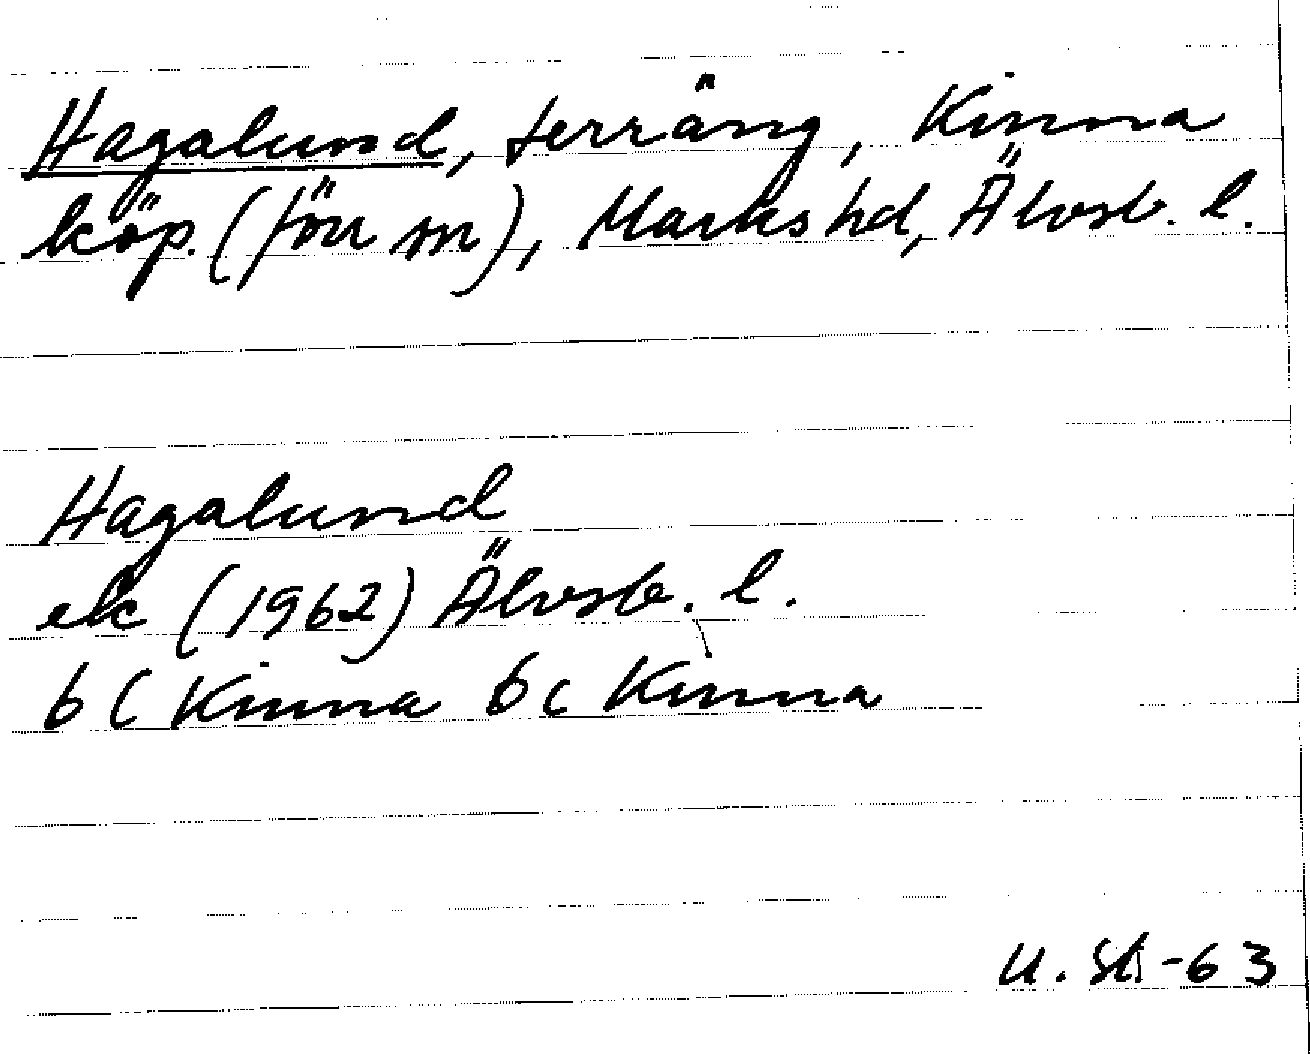 Hagalund, terräng, Kinna
köp. (förr sn), Marks hd, Älvsb. l.
Hagalund
ek (1962) Älvsb. l.
6 C Kinna 6 c Kinna
U. St -63